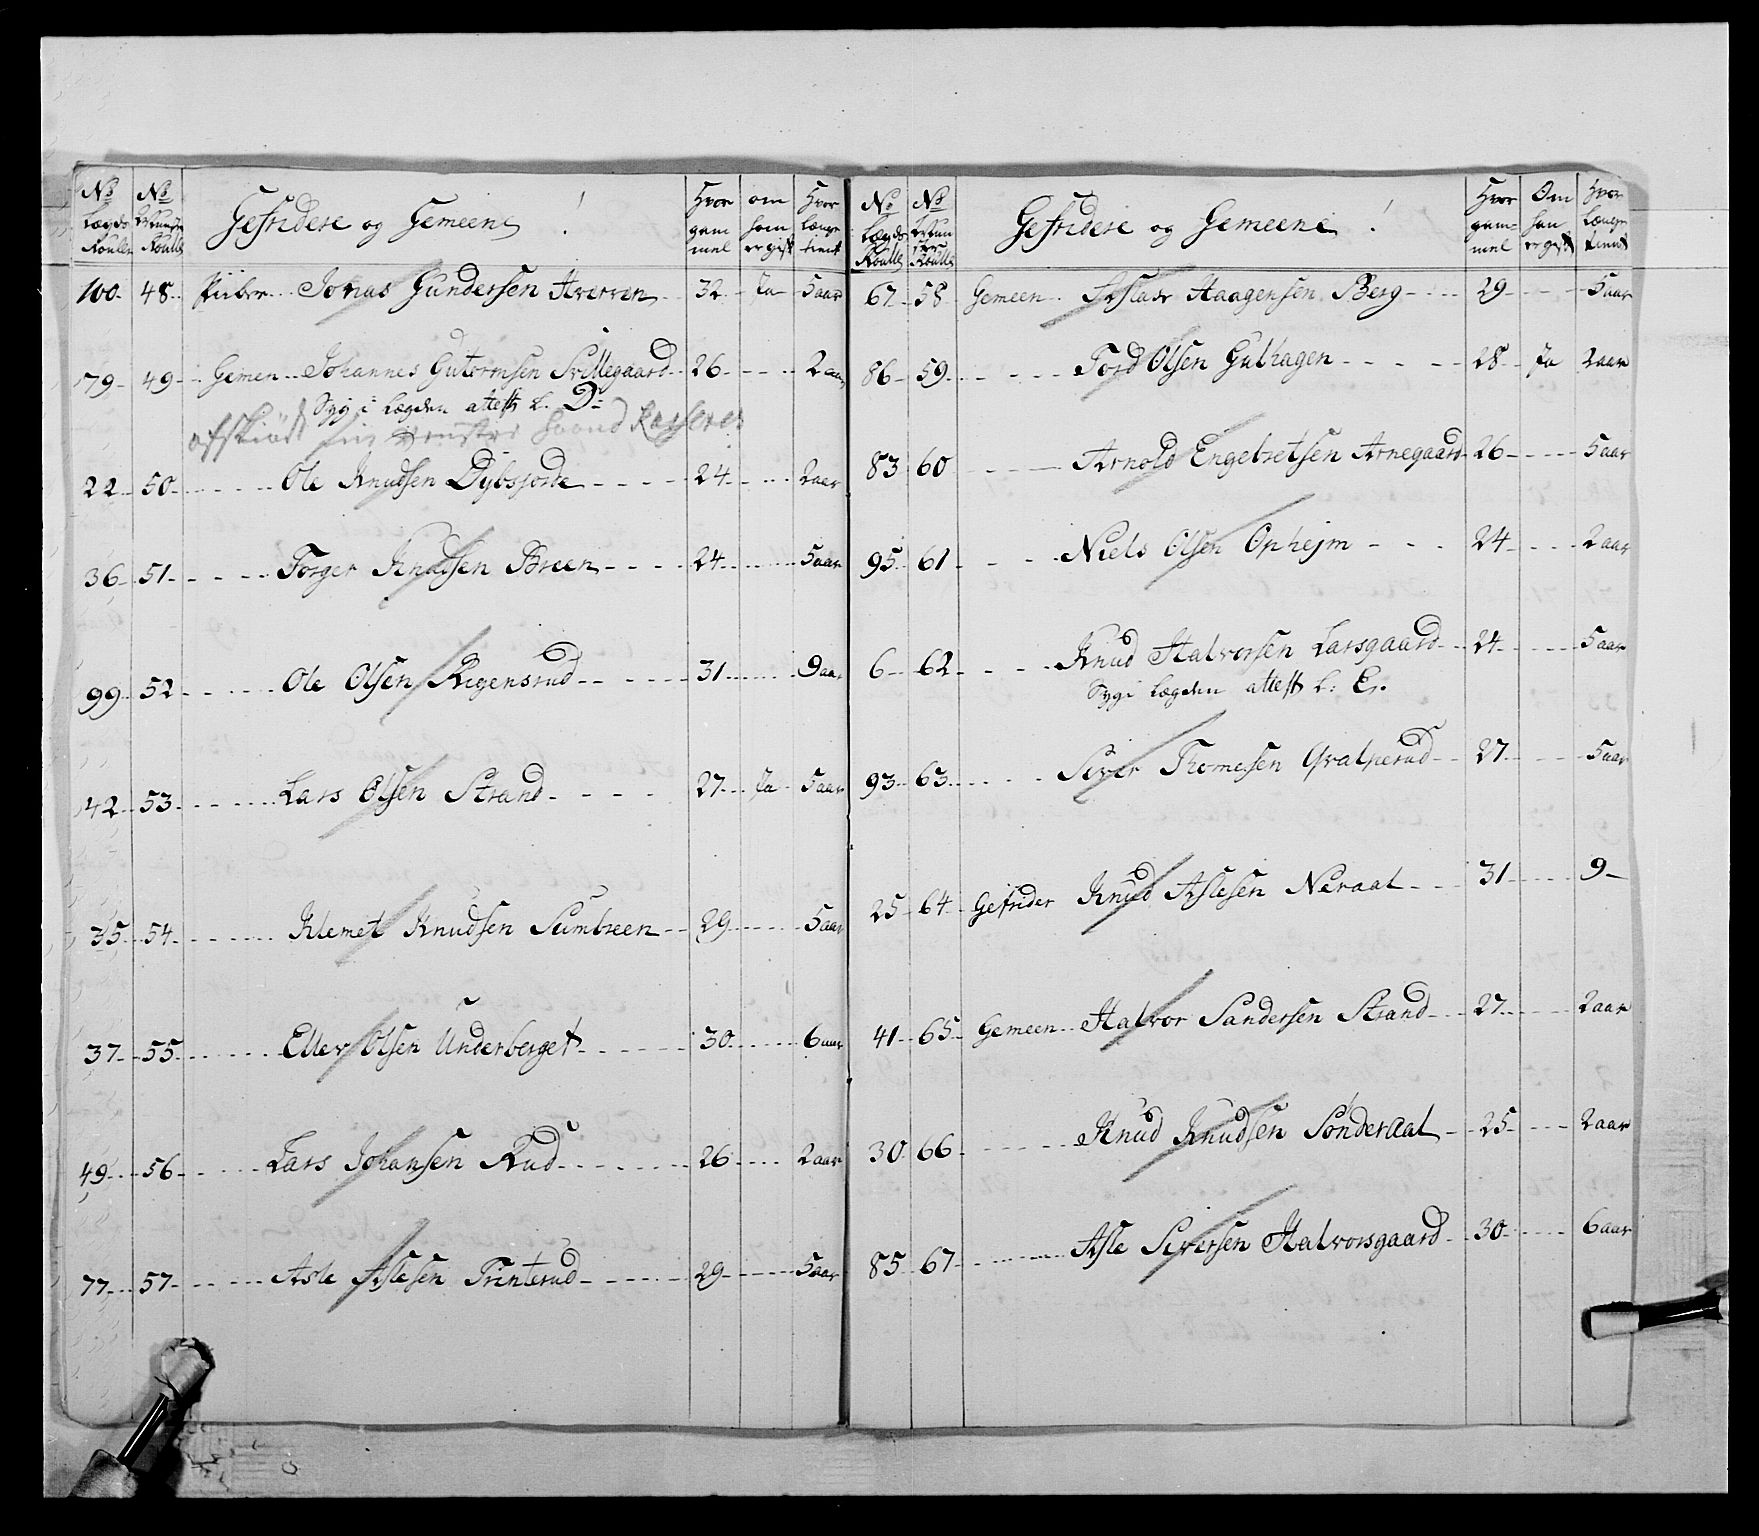 No Lægds Roullen
No Roulle
Gefridere og Gemeene !
Hvor gam mel
om ham er gift
Hvor længe tient
100 48 Piiber Jonas Gundersen 32 Ja 5 aar
79 49 Gemen Johannes Gutormsen Villegaard 26 2 aar
Syg i Lægden attest L. D:
afskiæd haand
22 50 Ole Knudsen Dybsjorde 24 2 aar
36 51 Torger Knudsen Breen 24 5 aar
99 52 Ole Olsen Rigensrud 31 9 aar
42 53 Lars Olsen Strand 27 Ja 5 aar
35 54 Klemet Knudsen Sumbreen 29 5 aar
37 55 Ellev Olsen Underberget 30 6 aar
49 56 Lars Johansen Rud 26 2 aar
77 57 Asle Aslesen Trinterud 29 5 aar
No Lægds Roulle
No Roulle
Gefridere og Gemeene !
Hvor gam- mel
Om han er gift
Hvor Længe tient
67 58 Gemeen Aslak Haagensen Berg 29 5 aar
86 59 Tord Olsen Gulhagen 28 Ja 2 aar
83 60 Arnold Engebretsen Arnegaard 26 5 aar
95 61 Niels Olsen Ophejm 24 2 aar
6 62 Knud Halvorsen Larsgaard 24 5 aar
Syg i Lægden attest L: E.
93 63 Siver Thomesen Qvalperud 27 5 aar
25 64 Gefrider Knud Aslesen Neraal 31 9
41 65 Gemeen Halvor Sandersen Strand 27 2 aar
30 66 Knud Knudsen Sønderaal 25 2 aar
85 67 Asle Siversen Halvorsgaard 30 6 aar